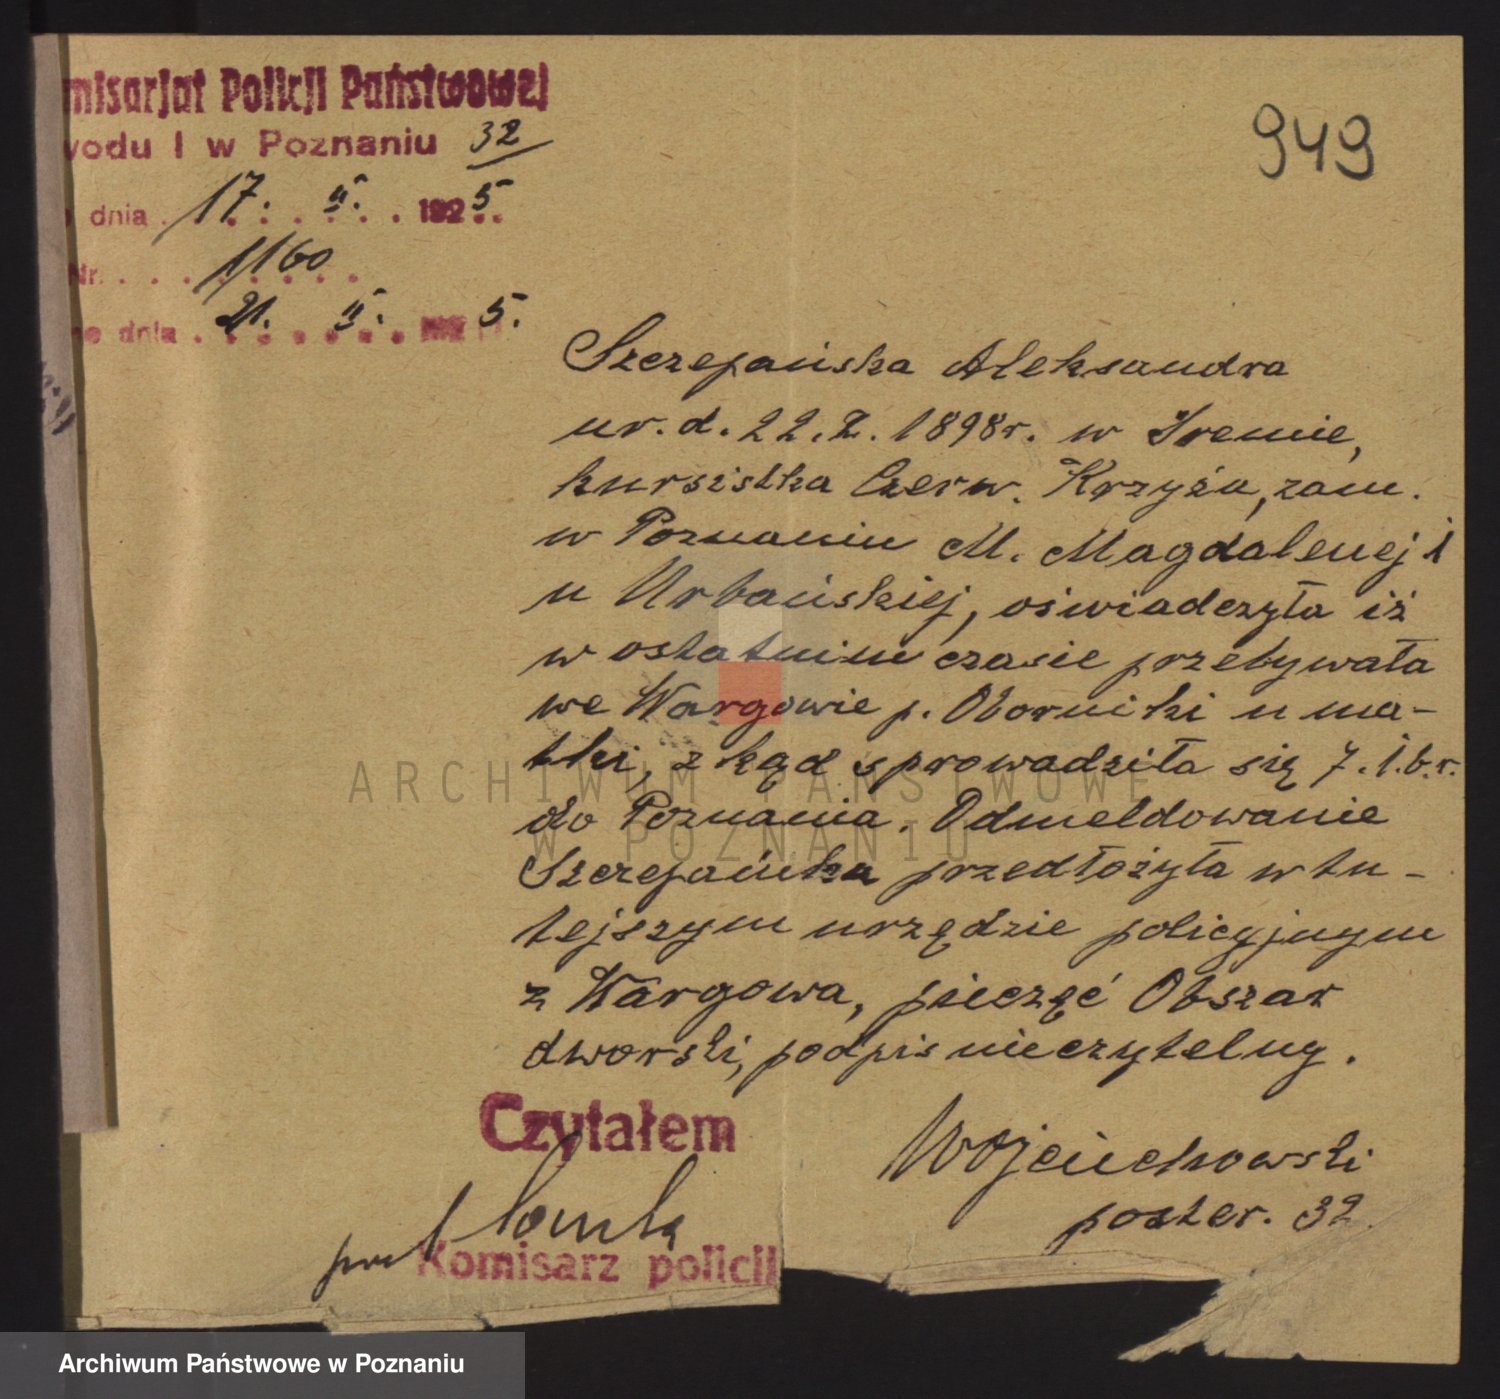 misarjat Policji Państwowej
wodu I w Poznaniu 32
dnia 17. II. 1925
Nr. 1160
ne dnia 21. II. 5.
949
Szczepańska Aleksandra
ur. d. 22.2.1898r. w Śremie,
kursistka Czerw. Krzyża, zam.
w Poznaniu M. Magdalenej 1
u Urbańskiej, oświadczyła iż
w ostatnim czasie przebywała
we Wargowie p. Oborniki u ma-
tki, z kąd sprowadziła się 7.1.b.r.
do Poznania. Odmeldowanie
Szczepańska przedłożyła w tu-
tejszym urzędzie policyjnym
z Wargowa, pieczęć Obszar
dworski, podpis nieczytelny.
Czytałem
Wojciechowski
poster. 32
Komisarz policji
ARCHIWUM PAŃSTWOWE
W POZNANIU
Archiwum Państwowe w Poznaniu